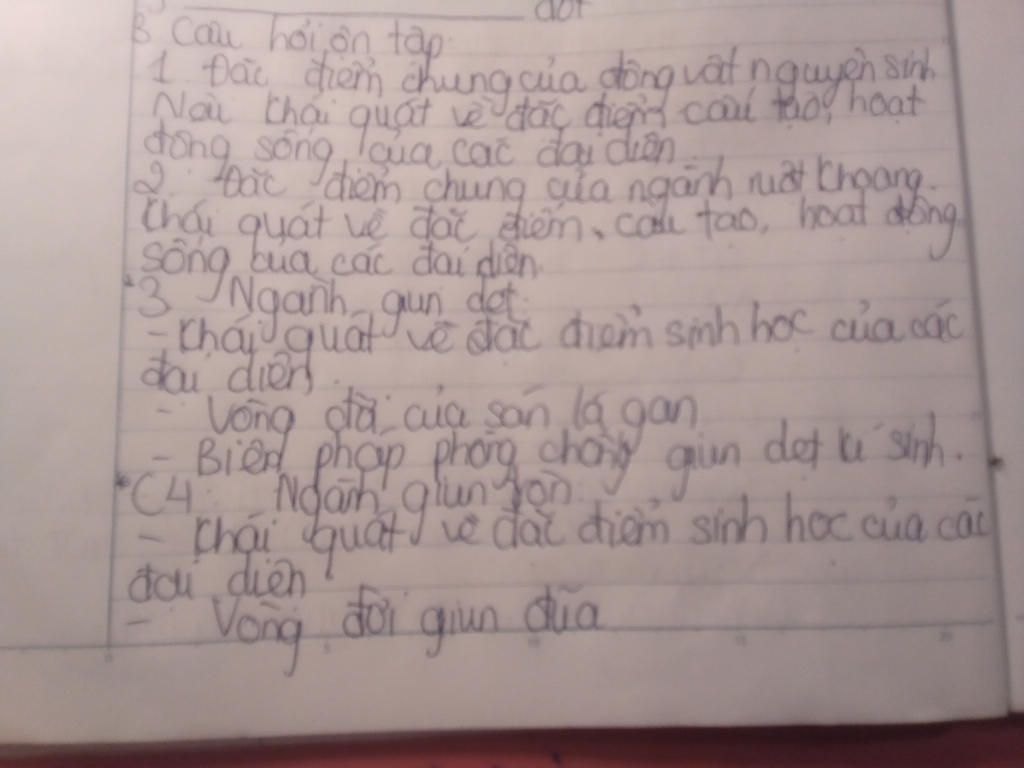 đốt
B Câu hỏi ôn tập.
1 Đặc điểm chung của động vật nguyên sinh
Nêu khái quát về đặc điểm cấu tạo, hoạt
động sống của các đại diện
2. Đặc điểm chung của ngành ruột khoang.
Khái quát về đặc điểm, cấu tạo, hoạt động
sống của các đại diện.
3 Ngành giun dẹt.
- Khái quát về đặc điểm sinh học của các
đại diện.
- Vòng đời của sán lá gan
- Biện pháp phòng chống giun dẹt kí sinh.
C4: Ngành giun tròn.
- Khái quát về đặc điểm sinh học của các
đại diện
- Vòng đời giun đũa